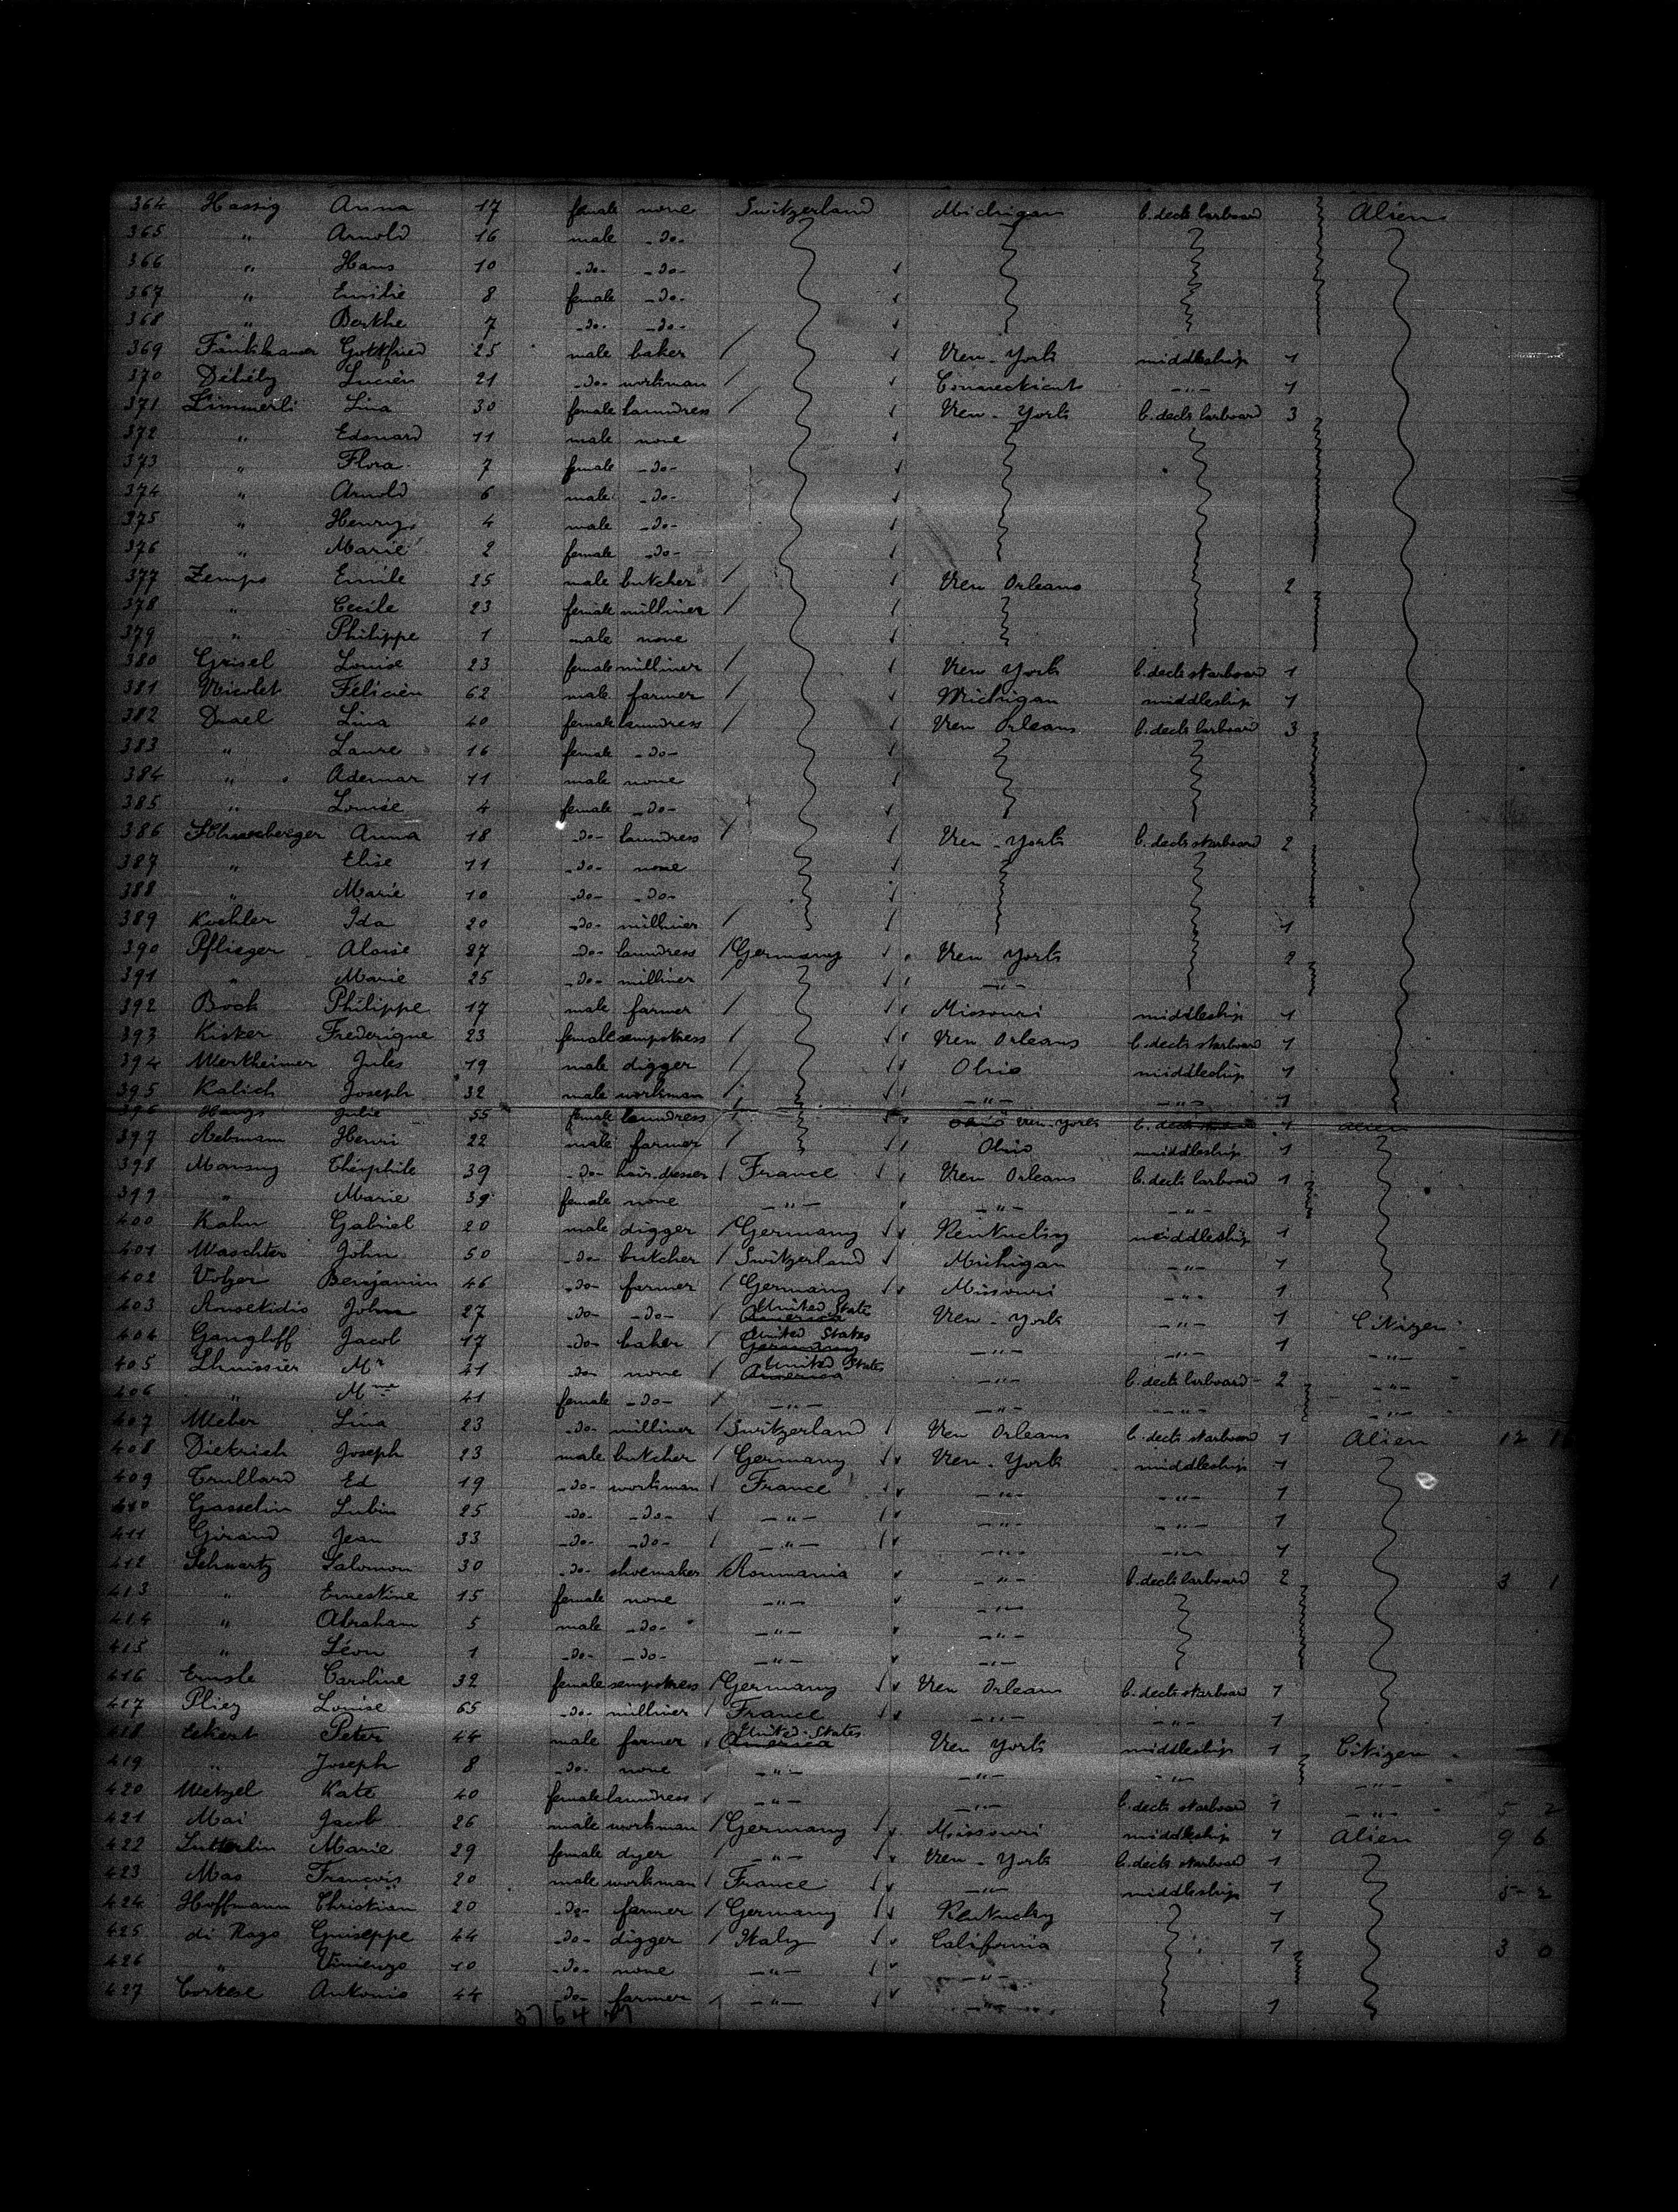 364 Hassig Anna 17 female none Switzerland Michigan b. deck larboard Alien
365 " Arnold 16 male -do-
366 " Hans 10 -do- -do-
367 " Emilie 8 female -do-
368 " Berthe 7 -do- -do-
369 Fankhauser Gottfried 25 male baker New-York middleship 1
370 Lucien 21 -do- workman Connecticut -"- 1
371 Zimmerli Lina 30 female laundress New-York b. deck larboard 3
372 " Edouard 11 male none
373 " Flora 7 female -do-
374 " Arnold 6 male -do-
375 " Henry 4 male -do-
376 " Marie 2 female -do-
377 Zemps Emile 25 male butcher New Orleans 2
378 " Cecile 23 female milliner
379 " Philippe 1 male none
380 Grisel Louise 23 female milliner New York b. deck starboard 1
381 Nicolet Félicien 62 male farmer Michigan middleship 1
382 Lina 40 female laundress New Orleans b. deck larboard 3
383 " Laure 16 female -do-
384 " Ademar 11 male none
385 " Louise 4 female -do-
386 Anna 18 -do- laundress New-York b. deck starboard 2
387 " Elise 11 -do- none
388 " Marie 10 -do- -do-
389 Koehler Ida 20 -do- milliner 1
390 Pflieger Aloise 27 -do- laundress Germany New York 2
391 " Marie 25 -do- milliner -"-
392 Bock Philippe 17 male farmer Missouri middleship 1
393 Kisker Frederique 23 female sempstress New Orleans b. deck starboard 1
394 Wertheimer Jules 19 male digger Ohio middleship 1
395 Kalich Joseph 32 male workman -"- -"- 1
396 Julie 55 female laundress Ohio New-York b. deck 1 alien
397 Aebmann Henri 22 male farmer Ohio middleship 1
398 Mansuy Théophile 39 -do- hair-dresser France New Orleans b. deck larboard 1
399 " Marie 39 female none -"- -"- -"-
400 Kahn Gabriel 20 male digger Germany Kentucky middleship 1
401 Waechter John 50 -do- butcher Switzerland Michigan -"- 1
402 Volzer Benjamin 46 -do- farmer Germany Missouri -"- 1
403 John 27 -do- -do- America United State New-York -"- 1 Citizen
404 Gangloff Jacob 17 -do- baker Germany United States -"- -"- 1 -"-
405 Lhuissier Mr 41 -do- none America United States -"- b. deck larboard 2 -"-
406 " Mme 41 female -do- -"- -"- -"- -"-
407 Weber Lina 23 -do- milliner Switzerland New Orleans b. deck starboard 1 Alien 12
408 Dietrich Joseph 23 male butcher Germany New-York middleship 1
409 Ed 19 -do- workman France -"- -"- 1
410 Gasselin Lubin 25 -do- -do- -"- -"- -"- 1
411 Girand Jean 33 -do- -do- -"- -"- -"- 1
412 Schwartz Salomon 30 -do- shoemaker Roumania -"- b. deck larboard 2 3 1
413 " Ernestine 15 female none -"- -"-
414 " Abraham 5 male -do- -"- -"-
415 " Léon 1 -do- -do- -"- -"-
416 Caroline 32 female sempstress Germany New Orleans b. deck starboard 1
417 Louise 65 -do- milliner France -"- -"- 1
418 Eckert Peter 44 male farmer America United-States New York middleship 1 Citizen
419 " Joseph 8 -do- none -"- -"- -"- -"-
420 Wetzel Kate 40 female laundress -"- -"- b. deck starboard 1 -"- 5 2
421 Mai Jacob 26 male workman Germany Missouri middleship 1 Alien 9 6
422 Sutterlin Marie 29 female dyer -"- New-York b. deck starboard 1
423 Mas François 20 male workman France -"- middleship 1 5 2
424 Hoffmann Christian 20 -do- farmer Germany Kentucky 1
425 di Rago Guiseppe 44 -do- digger Italy California 1 3 0
426 " Vinienzo 10 -do- none -"- -"-
427 Cortese Antonio 44 -do- farmer -"- -"- 1